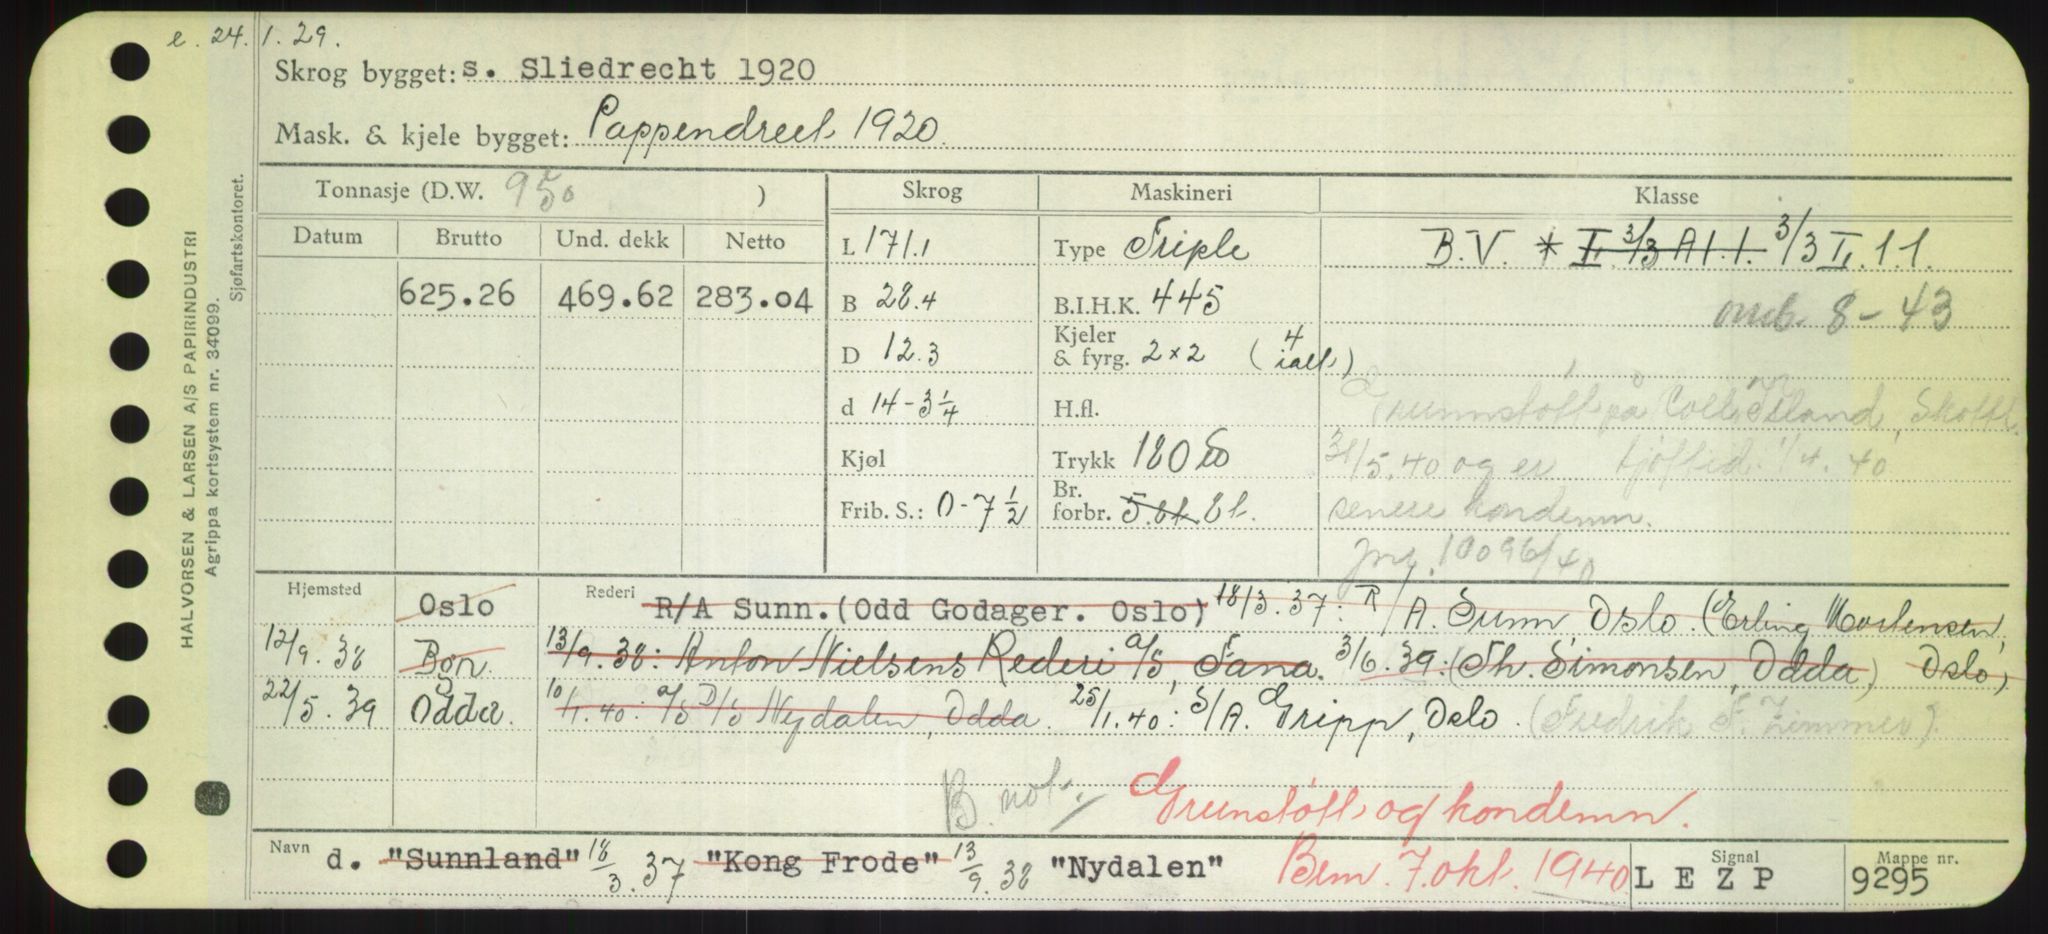 e. 24. 1. 29.
Skrog bygget: s. Sliedrecht 1920
Mask. & kjele bygget: Pappendrecht 1920.
Tonnasje (D.W. 950 )
Skrog
Maskineri
Klasse
Datum
Brutto
Und. dekk
Netto
625.26
469.62
283.04
L 171.1
B 28.4
D 12.3
d 14-3 1/4
Kjøl
Frib. S.: 0-7 1/2
Type Triple
B.I.H.K. 445
Kjeler & fyrg. 2x2 (4 ialt)
H.fl.
Trykk 180
Br. forbr. 5.8t. 8t.
B.V. * I. 3/3 A1.1. 3/3 II. 1.1.
omb. 8-43
Grunnstött på Coll Island, Skottl.
31/5.40 og er 1/4.40
senere kondemn.
Jnr. 10096/40
Hjemsted
Oslo
12/9. 38 Bgn.
22/5. 39 Odda.
Rederi
R/A Sunn. (Odd Godager. Oslo) 18/3. 37: R/A. Sunn Oslo. (Erling Mortensen, Oslo)
13/9. 38: Anton Nielsens Rederi a/s, Fana. 3/6. 39: (Th. Simonsen, Odda)
10/1. 40: A/S D/S Nydalen, Odda. 25/1. 40: S/A. Gripp, Oslo. (Fredrik F. Zimmer).
B. not.
Grunstött og kondemn.
Navn d. "Sunnland" 18/3. 37 "Kong Frode" 13/9. 38 "Nydalen"
Brm. 7. okt. 1940
Signal
LEZP
Mappe nr.
9295
HALVORSEN & LARSEN A/S PAPIRINDUSTRI
Agrippa kortsystem nr. 34099.
Sjøfartskontoret.